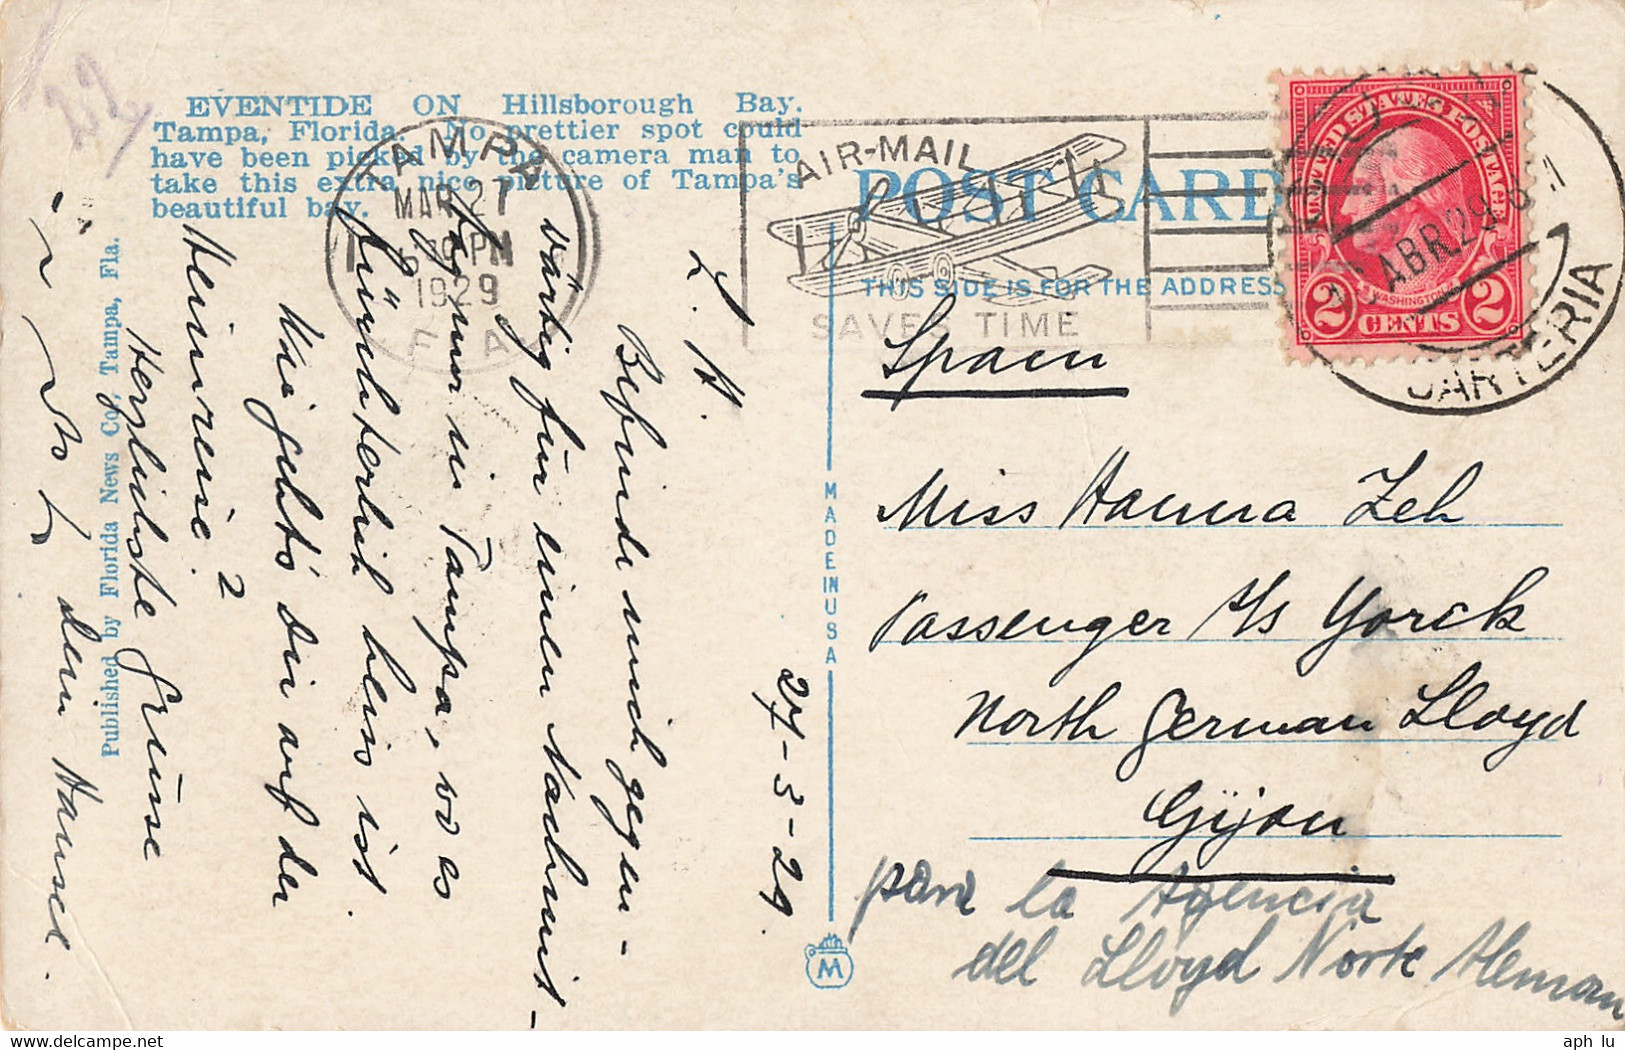 22
EVENTIDE ON Hillsborough Bay.
Tampa, Florida. No prettier spot could
have been picked by the camera man to
take this extra nice picture of Tampa's
beautiful bay.
Published by Florida News Co., Tampa, Fla.
TAMPA
MAR 27
PM
1929
FLA
AIR-MAIL
SAVES TIME
POST CARD
THIS SIDE IS FOR THE ADDRESS
UNITED STATES POSTAGE
WASHINGTON
2 CENTS 2
ABR.29
CARTERIA
MADE IN USA
M
27-3-29.
L. H.
Befinde mich gegen-
wärtig für einen Nachmit-
tag nur in Tampa, wo es
fürchterlich heiss ist.
Wie geht's Dir auf der
Heimreise?
Herzlichste Grüsse
dein Hansel.
Spain
Miss Hanna Zeh
Passenger S/S Yorck
North German Lloyd
Gijon
para la Agencia
del Lloyd Norte Aleman
aph lu